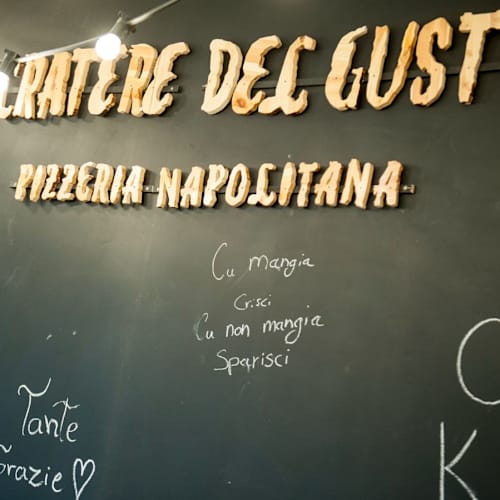 CRATERE DEL GUST
PIZZERIA NAPOLITANA
Cu mangia
Crisci
Cu non mangia
Sparisci
Tante
Grazie ♡
O
K